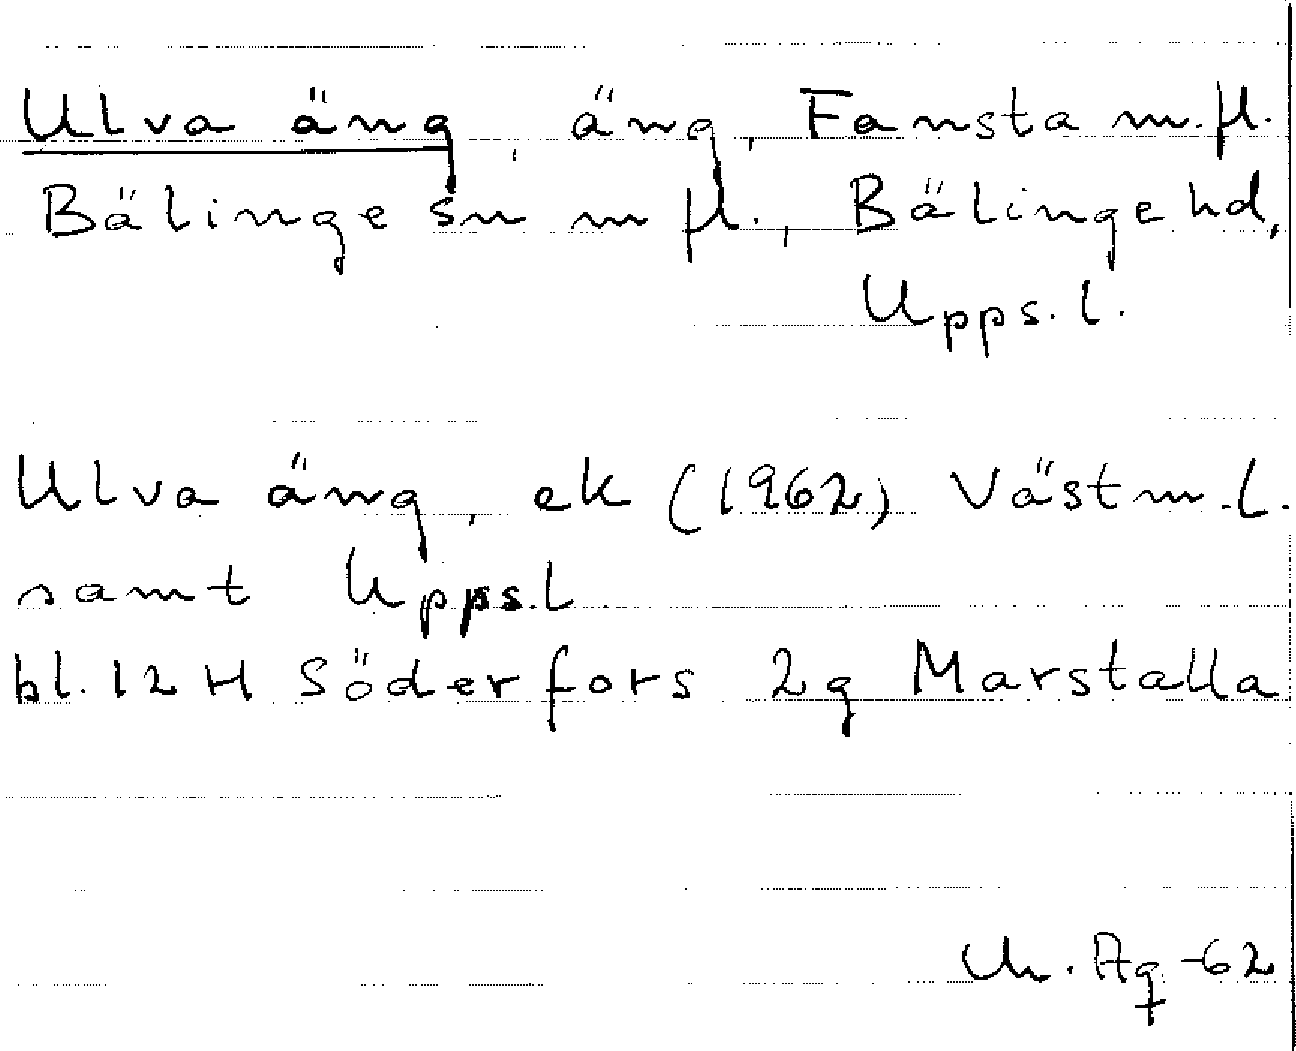 Ulva äng, äng, Fansta m.fl.
Bälinge sn m fl., Bälinge hd,
Upps. l.
Ulva äng, ek (1962) Västm.l.
samt Upps.l
bl. 12 H Söderfors 2g Marstalla
-62